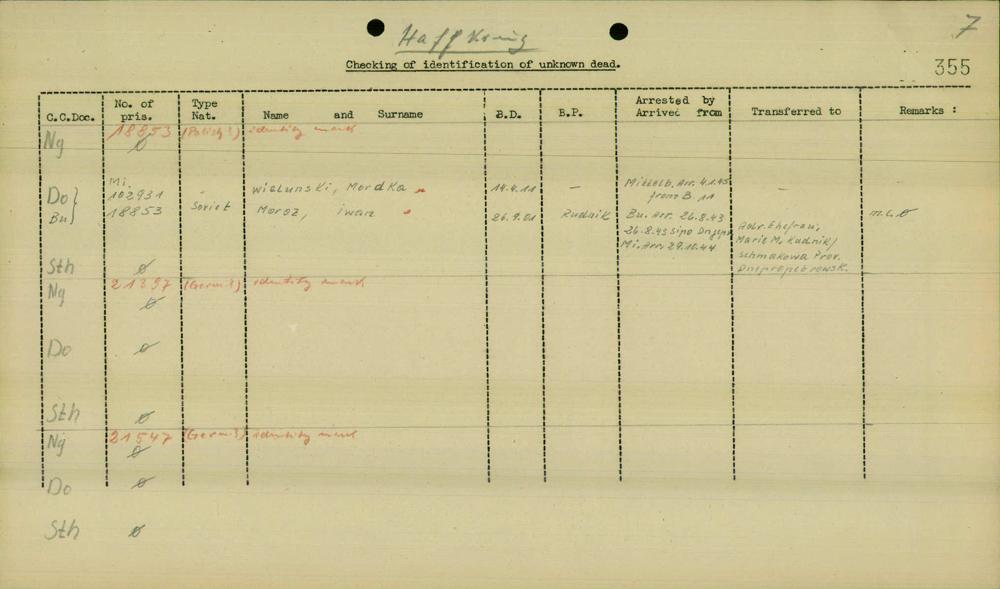 7
Haffkrug
Checking of identification of unknown dead.
355
C.C.Doc. No. of pris. Type Nat. Name and Surname B.D. B.P. Arrested by Arrived from Transferred to Remarks :
Ng 18853 (Polish?) identity mark
ø
Mi.
Do} 102931 - Wielunski, Mordka " 14.4.11 — Mittelb. Arr. 4.1.45 from B. 11 —
Bu} 18853 Soviet Moroz, Iwan " 26.9.01 Rudnik Bu. Arr. 26.8.43 m.l.ø
26.8.43 Sipo Dnjepr.
Mi. Arr. 29.10.44
Adr. Ehefrau,
Marie M. Rudnik/
Schmakowa Prov.
Dnepropetrowsk.
Sth ø
Ng 21397 (Germ?) identity mark
ø
Do ø
Sth ø
Ng 21547 (Germ?) identity mark
ø
Do ø
Sth ø